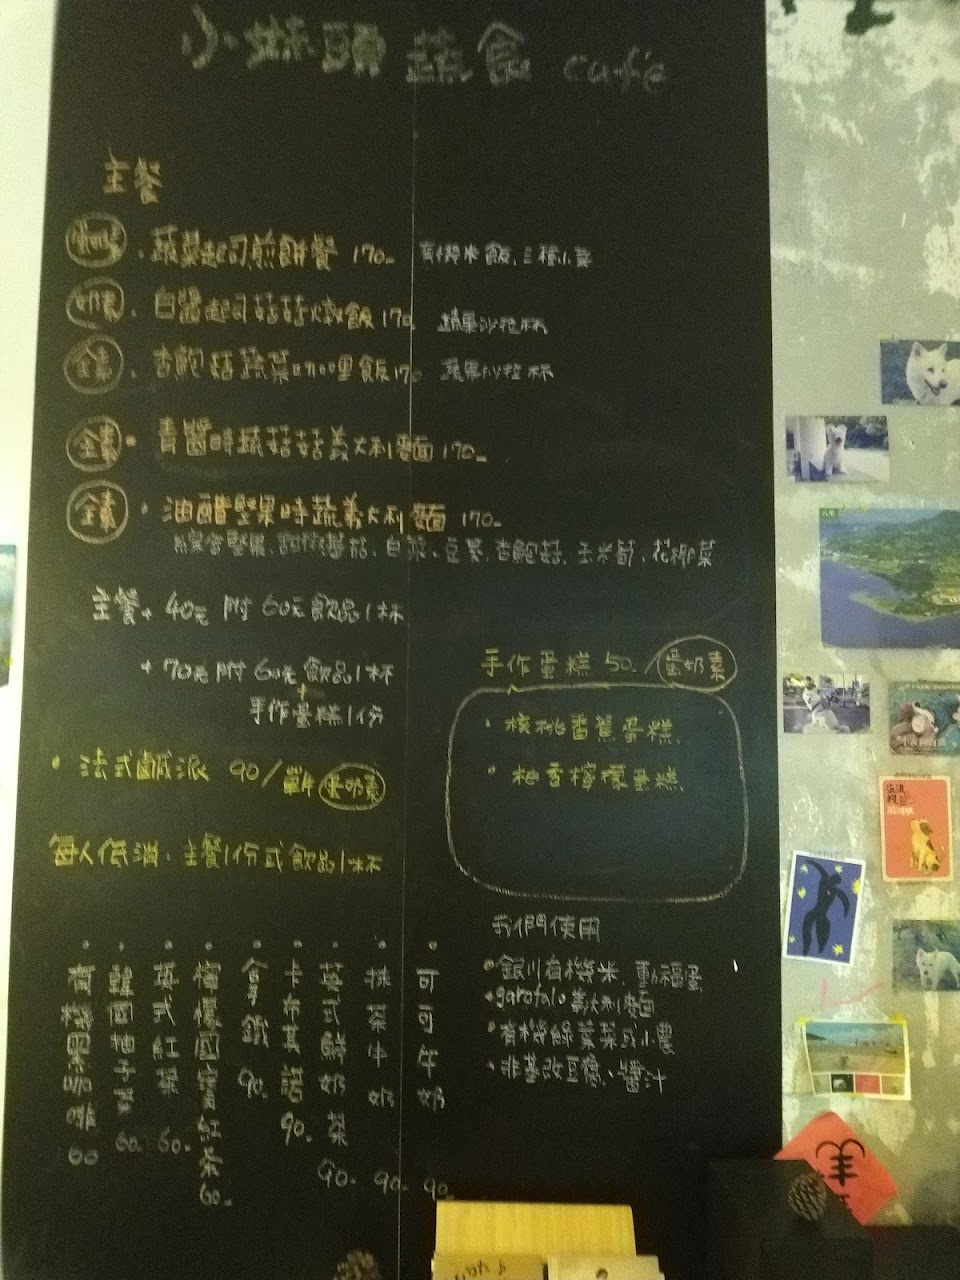 小 頭 蔬食 café
主餐
蔬菜起司煎餅餐 170- 有機米飯、三種小菜
奶素 · 白醬起司菇菇燉飯 170 蔬果沙拉杯
全素 · 杏鮑菇蔬菜咖哩飯 170 蔬果沙拉杯
全素 · 青醬時蔬菇菇義大利麵 170-
全素 · 油醋堅果時蔬義大利麵 170-
綜合堅果、甜椒蕃茄、白菜、豆菜、杏鮑菇、玉米筍、花椰菜
主餐 + 40元 附 60元飲品1杯
+ 70元 附 60元飲品1杯
+
手作蛋糕1份
手作蛋糕 50. / 蛋奶素
· 核桃香蕉蛋糕、
· 柚香檸檬蛋糕、
· 法式鹹派 90/單片 蛋奶素
每人低消、主餐1份或飲品1杯
· 有機黑咖啡 60
· 韓國柚子茶 60-
· 英式紅茶 60-
· 檸檬國寶紅茶 60-
· 拿鐵 90-
· 卡布其諾 90-
· 英式鮮奶茶 90-
· 抹茶牛奶 90-
· 可可牛奶 90-
我們使用
· 銀川有機米、動福蛋
· garofalo 義大利麵
· 有機綠葉菜或小農
· 非基改豆腐、醬汁